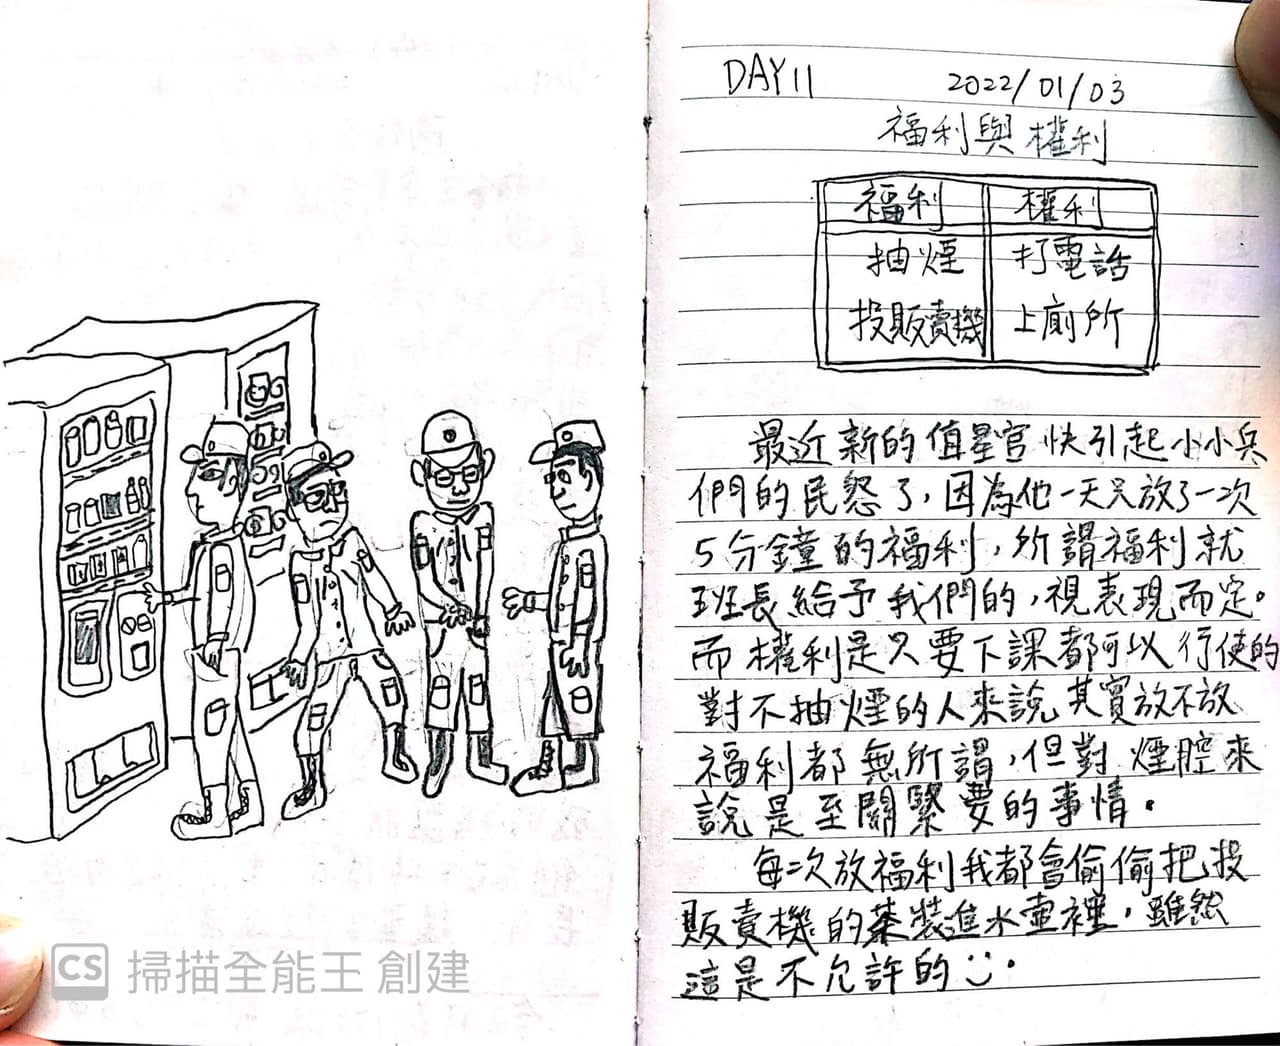 DAY11 2022/01/03
福利與權利
福利 權利
抽煙 打電話
投販賣機 上廁所
最近新的值星官快引起小小兵
們的民怒了，因為他一天只放了一次
5分鐘的福利，所謂福利就
班長給予我們的，視表現而定。
而權利是只要下課都可以行使的
對不抽煙的人來說其實放不放
福利都無所謂，但對煙腔來
說是至關緊要的事情。
每次放福利我都會偷偷把投
販賣機的茶裝進水壺裡，雖然
這是不允許的。
CS 掃描全能王 創建